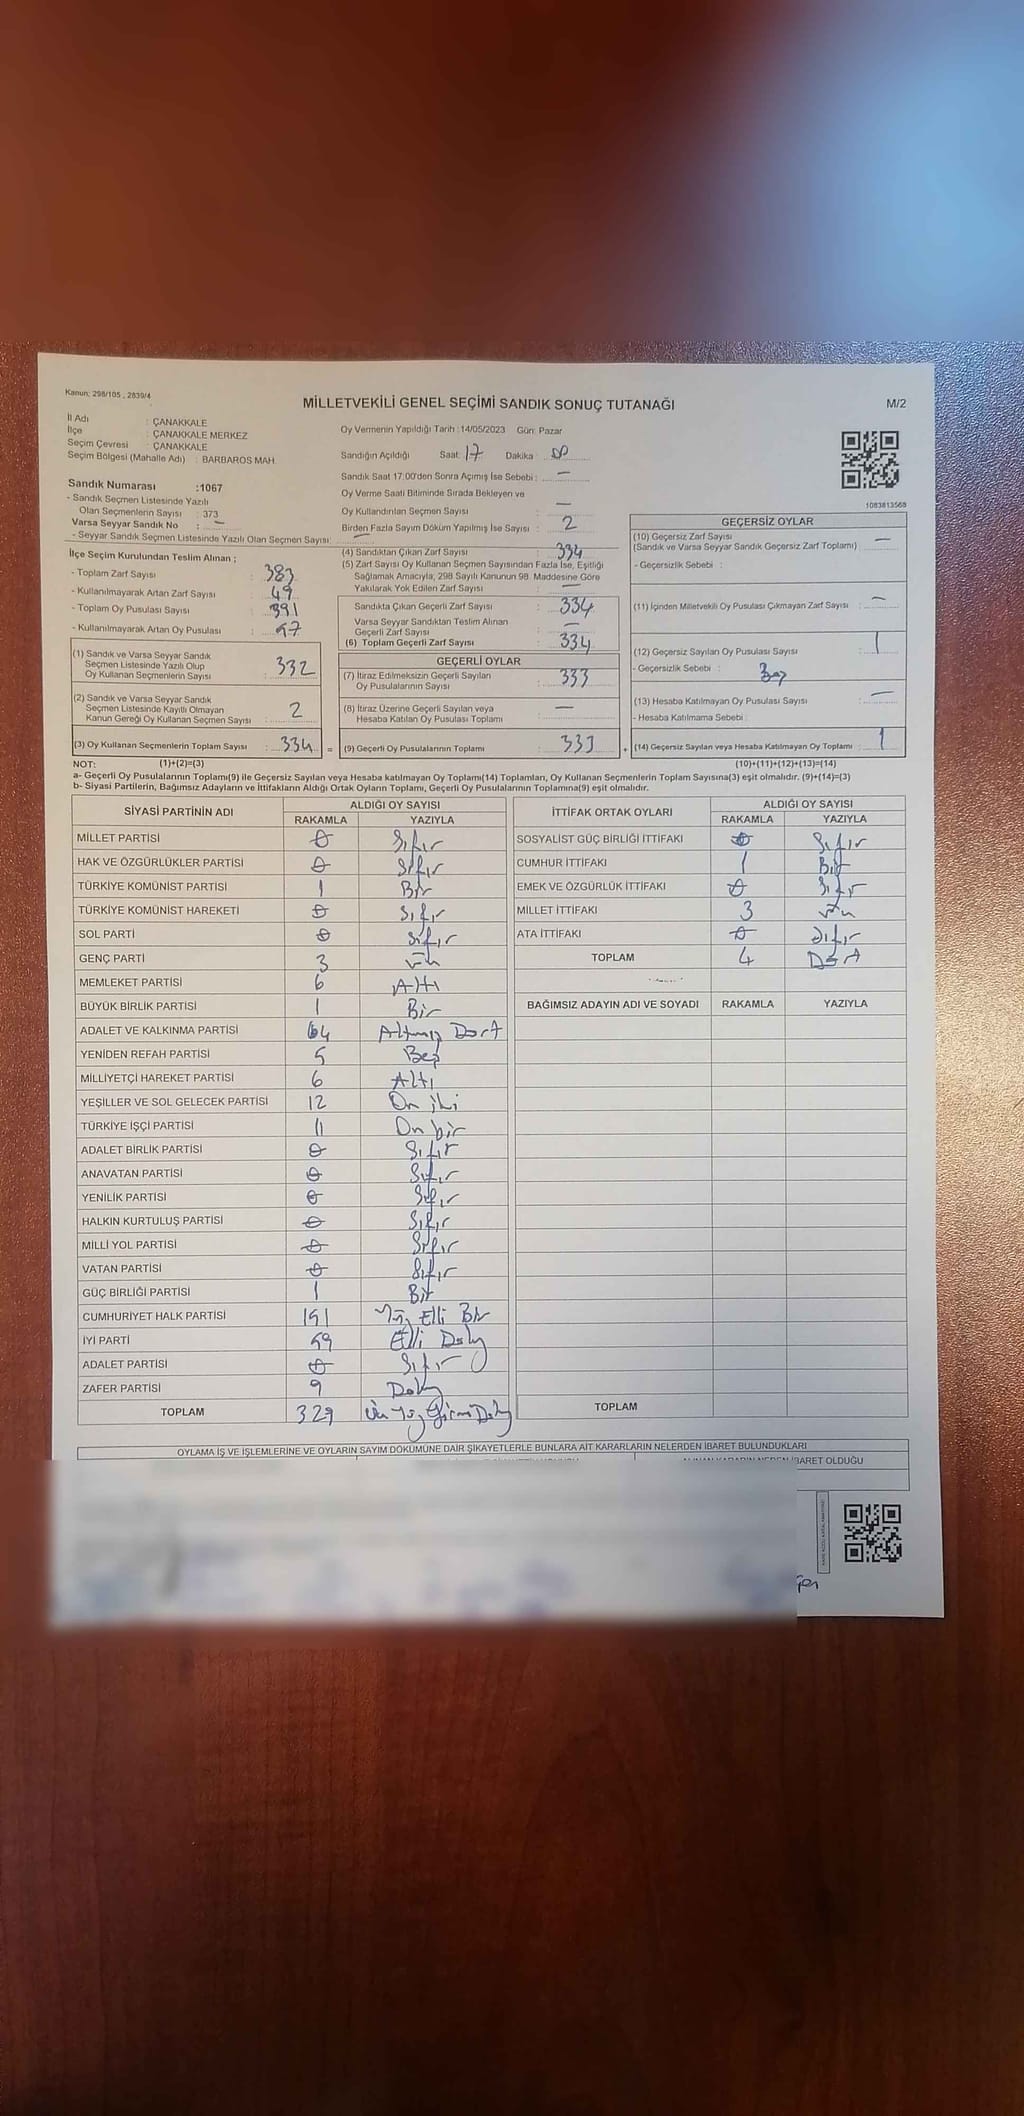 Kanun: 298/105 , 2839/4
MİLLETVEKİLİ GENEL SEÇİMİ SANDIK SONUÇ TUTANAĞI
M/2
İl Adı : ÇANAKKALE
İlçe : ÇANAKKALE MERKEZ
Seçim Çevresi : ÇANAKKALE
Seçim Bölgesi (Mahalle Adı) : BARBAROS MAH.
Oy Vermenin Yapıldığı Tarih :14/05/2023 Gün: Pazar
Sandığın Açıldığı Saat: 17 Dakika : 00
Sandık Saat 17:00'den Sonra Açımış İse Sebebi : —
Oy Verme Saati Bitiminde Sırada Bekleyen ve
Oy Kullandırılan Seçmen Sayısı : —
Birden Fazla Sayım Döküm Yapılmış İse Sayısı : 2
1083813568
Sandık Numarası :1067
- Sandık Seçmen Listesinde Yazılı
Olan Seçmenlerin Sayısı : 373
Varsa Seyyar Sandık No : —
- Seyyar Sandık Seçmen Listesinde Yazılı Olan Seçmen Sayısı: —
İlçe Seçim Kurulundan Teslim Alınan ;
- Toplam Zarf Sayısı : 383
- Kullanılmayarak Artan Zarf Sayısı : 49
- Toplam Oy Pusulası Sayısı : 391
- Kullanılmayarak Artan Oy Pusulası : 57
(1) Sandık ve Varsa Seyyar Sandık
Seçmen Listesinde Yazılı Olup
Oy Kullanan Seçmenlerin Sayısı : 332
(2) Sandık ve Varsa Seyyar Sandık
Seçmen Listesinde Kayıtlı Olmayan
Kanun Gereği Oy Kullanan Seçmen Sayısı : 2
(3) Oy Kullanan Seçmenlerin Toplam Sayısı : 334 =
(4) Sandıktan Çıkan Zarf Sayısı : 334
(5) Zarf Sayısı Oy Kullanan Seçmen Sayısından Fazla İse, Eşitliği
Sağlamak Amacıyla, 298 Sayılı Kanunun 98. Maddesine Göre
Yakılarak Yok Edilen Zarf Sayısı : —
Sandıkta Çıkan Geçerli Zarf Sayısı : 334
Varsa Seyyar Sandıktan Teslim Alınan
Geçerli Zarf Sayısı : —
(6) Toplam Geçerli Zarf Sayısı : 334
GEÇERLİ OYLAR
(7) İtiraz Edilmeksizin Geçerli Sayılan
Oy Pusulalarının Sayısı : 333
(8) İtiraz Üzerine Geçerli Sayılan veya
Hesaba Katılan Oy Pusulası Toplamı : —
(9) Geçerli Oy Pusulalarının Toplamı : 333 +
GEÇERSİZ OYLAR
(10) Geçersiz Zarf Sayısı
(Sandık ve Varsa Seyyar Sandık Geçersiz Zarf Toplamı) : —
- Geçersizlik Sebebi :
(11) İçinden Milletvekili Oy Pusulası Çıkmayan Zarf Sayısı : —
(12) Geçersiz Sayılan Oy Pusulası Sayısı : 1
- Geçersizlik Sebebi : Boş
(13) Hesaba Katılmayan Oy Pusulası Sayısı : —
- Hesaba Katılmama Sebebi :
(14) Geçersiz Sayılan veya Hesaba Katılmayan Oy Toplamı : 1
NOT: (1)+(2)=(3) (10)+(11)+(12)+(13)=(14)
a- Geçerli Oy Pusulalarının Toplamı(9) ile Geçersiz Sayılan veya Hesaba katılmayan Oy Toplamı(14) Toplamları, Oy Kullanan Seçmenlerin Toplam Sayısına(3) eşit olmalıdır. (9)+(14)=(3)
b- Siyasi Partilerin, Bağımsız Adayların ve İttifakların Aldığı Oyların Toplamı, Geçerli Oy Pusulalarının Toplamına(9) eşit olmalıdır.
SİYASİ PARTİNİN ADI ALDIĞI OY SAYISI
RAKAMLA YAZIYLA
MİLLET PARTİSİ 0 Sıfır
HAK VE ÖZGÜRLÜKLER PARTİSİ 0 Sıfır
TÜRKİYE KOMÜNİST PARTİSİ 1 Bir
TÜRKİYE KOMÜNİST HAREKETİ 0 Sıfır
SOL PARTİ 0 Sıfır
GENÇ PARTİ 3 Üç
MEMLEKET PARTİSİ 6 Altı
BÜYÜK BİRLİK PARTİSİ 1 Bir
ADALET VE KALKINMA PARTİSİ 64 Altmış Dört
YENİDEN REFAH PARTİSİ 5 Beş
MİLLİYETÇİ HAREKET PARTİSİ 6 Altı
YEŞİLLER VE SOL GELECEK PARTİSİ 12 On iki
TÜRKİYE İŞÇİ PARTİSİ 11 On bir
ADALET BİRLİK PARTİSİ 0 Sıfır
ANAVATAN PARTİSİ 0 Sıfır
YENİLİK PARTİSİ 0 Sıfır
HALKIN KURTULUŞ PARTİSİ 0 Sıfır
MİLLİ YOL PARTİSİ 0 Sıfır
VATAN PARTİSİ 0 Sıfır
GÜÇ BİRLİĞİ PARTİSİ 1 Bir
CUMHURİYET HALK PARTİSİ 151 Yüz Elli Bir
İYİ PARTİ 59 Elli Dokuz
ADALET PARTİSİ 0 Sıfır
ZAFER PARTİSİ 9 Dokuz
TOPLAM 329 Üç Yüz Yirmi Dokuz
İTTİFAK ORTAK OYLARI ALDIĞI OY SAYISI
RAKAMLA YAZIYLA
SOSYALİST GÜÇ BİRLİĞİ İTTİFAKI 0 Sıfır
CUMHUR İTTİFAKI 1 Bir
EMEK VE ÖZGÜRLÜK İTTİFAKI 0 Sıfır
MİLLET İTTİFAKI 3 Üç
ATA İTTİFAKI 0 Sıfır
TOPLAM 4 Dört
BAĞIMSIZ ADAYIN ADI VE SOYADI RAKAMLA YAZIYLA
TOPLAM
OYLAMA İŞ VE İŞLEMLERİNE VE OYLARIN SAYIM DÖKÜMÜNE DAİR ŞİKAYETLERLE BUNLARA AİT KARARLARIN NELERDEN İBARET BULUNDUKLARI
ALINAN KARARIN NEDEN İBARET OLDUĞU